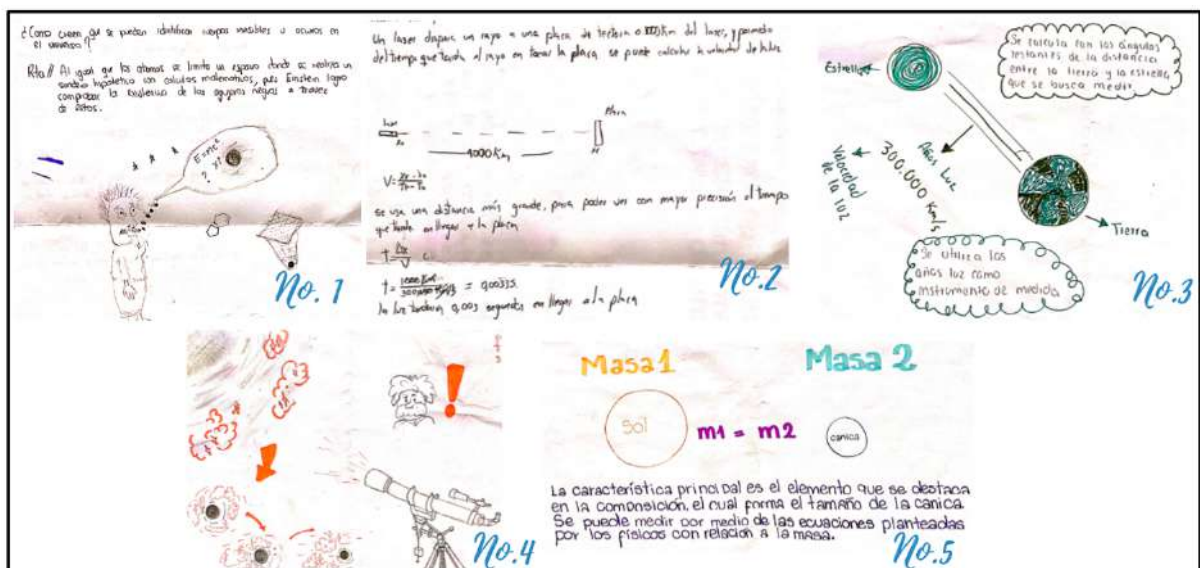 ¿Como creen que se pueden identificar cuerpos invisibles u oscuros en
el universo?
Rta// Al igual que los atomos se limita un espacio donde se realiza un
hipotetico con calculos matematicos, pues Einstein logro
comprobar la existencia de los agujeros negros a traves
de estos.
E=mc²
No. 1
Un laser dispara un rayo a una placa de del laser, y por medio
del tiempo que tarda el rayo en tocar la placa, se puede calcular la velocidad de la luz.
Placa
1000 Km
V=
se usa una distancia más grande, para poder ver con mayor precisión el tiempo
que tarda en llegar a la placa
t=
t= 1000 Km
la luz tardara 0,003 segundos en llegar a la placa
No.2
Se calcula con los ángulos
restantes de la distancia
entre la tierra y la estrella
que se busca medir
Estrella
Años Luz
300.000 Km/s
Velocidad
de la luz
Tierra
Se utiliza los
años luz como
instrumento de medida
No.3
!
No.4
Masa1 Masa 2
Sol m1 = m2 canica
La característica principal es el elemento que se destaca
en la composición, el cual forma el tamaño de la canica.
Se puede medir por medio de las ecuaciones planteadas
por los físicos con relación a la masa.
No.5